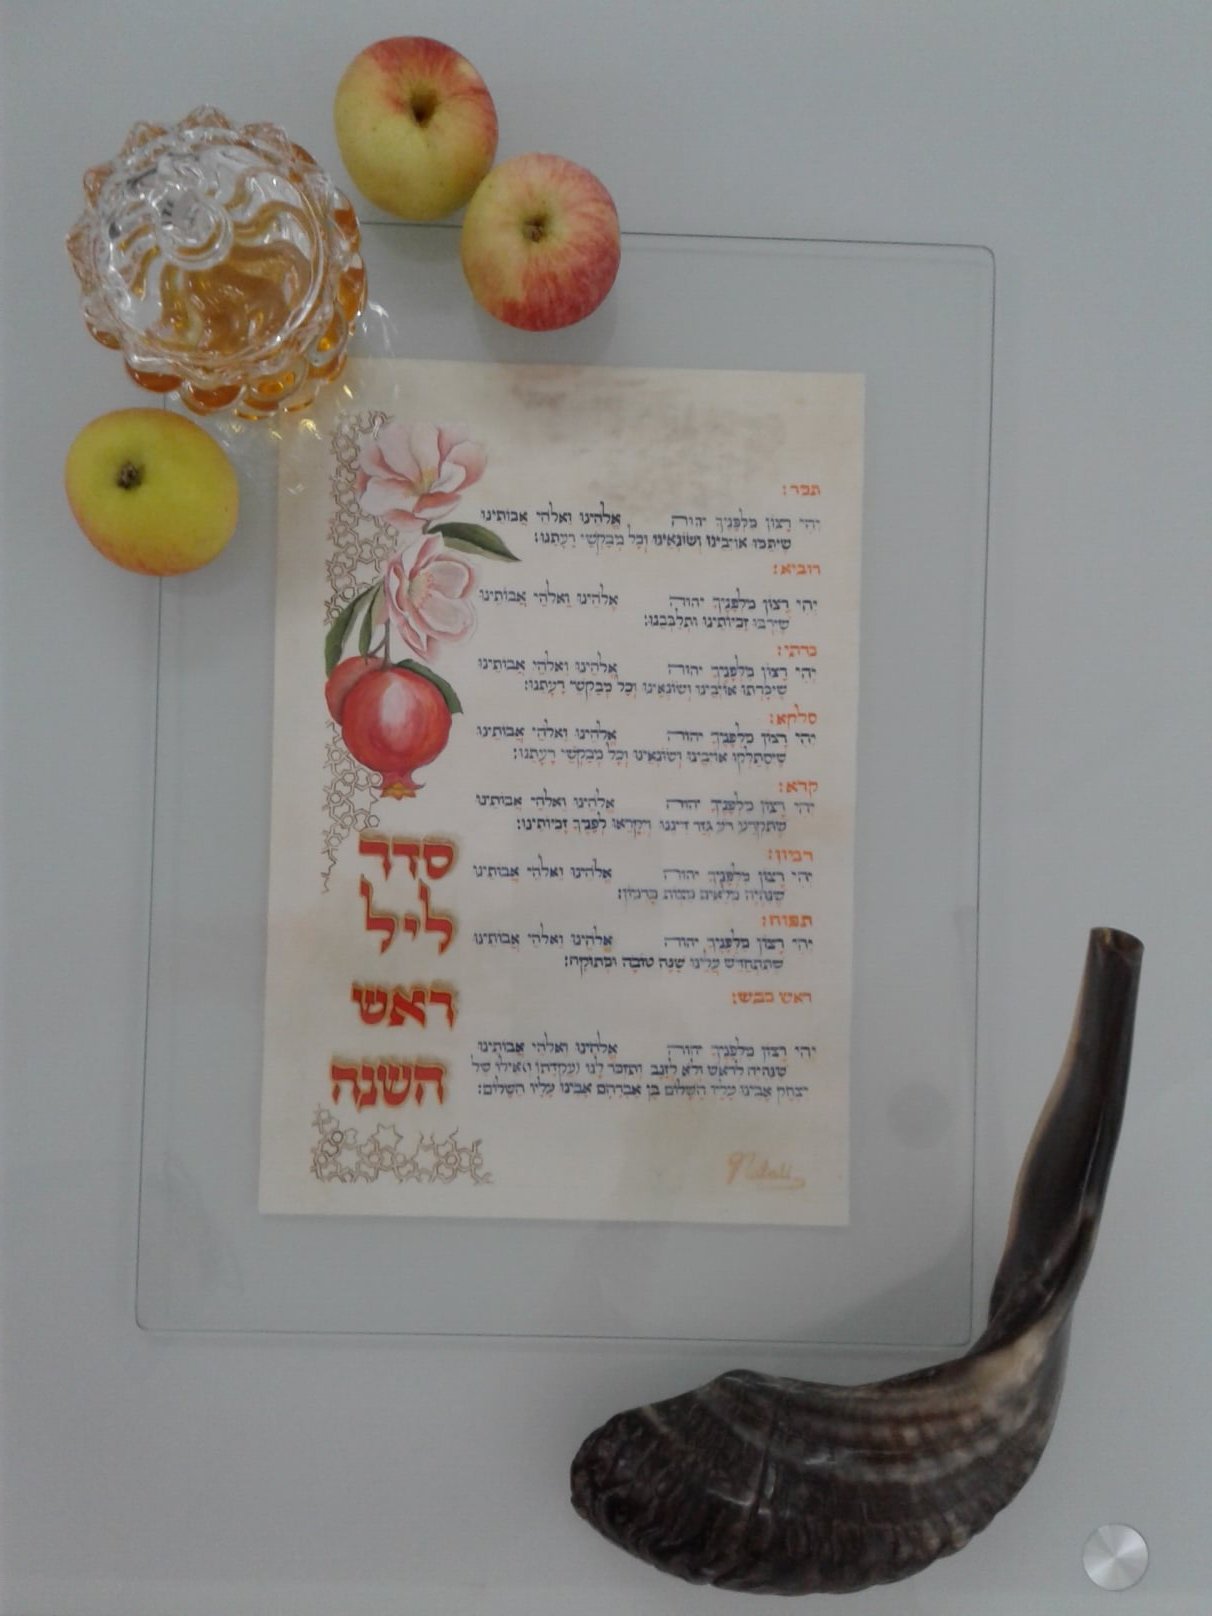 תמר:
יְהִי רָצוֹן מִלְּפָנֶיךָ יהוה אֱלֹהֵינוּ וֵאלֹהֵי אֲבוֹתֵינוּ
שֶׁיִּתַּמּוּ אוֹיְבֵינוּ וְשׂוֹנְאֵינוּ וְכָל מְבַקְשֵׁי רָעָתֵנוּ:
רוביא:
יְהִי רָצוֹן מִלְּפָנֶיךָ יהוה אֱלֹהֵינוּ וֵאלֹהֵי אֲבוֹתֵינוּ
שֶׁיִּרְבּוּ זָכִיּוֹתֵינוּ וּתְלַבְּבֵנוּ:
כרתי:
יְהִי רָצוֹן מִלְּפָנֶיךָ יהוה אֱלֹהֵינוּ וֵאלֹהֵי אֲבוֹתֵינוּ
שֶׁיִּכָּרְתוּ אוֹיְבֵינוּ וְשׂוֹנְאֵינוּ וְכָל מְבַקְשֵׁי רָעָתֵנוּ:
סלקא:
יְהִי רָצוֹן מִלְּפָנֶיךָ יהוה אֱלֹהֵינוּ וֵאלֹהֵי אֲבוֹתֵינוּ
שֶׁיִּסְתַּלְּקוּ אוֹיְבֵינוּ וְשׂוֹנְאֵינוּ וְכָל מְבַקְשֵׁי רָעָתֵנוּ:
קרא:
יְהִי רָצוֹן מִלְּפָנֶיךָ יהוה אֱלֹהֵינוּ וֵאלֹהֵי אֲבוֹתֵינוּ
שֶׁתִּקְרַע רֹעַ גְּזַר דִּינֵנוּ וְיִקָּרְאוּ לְפָנֶיךָ זָכִיּוֹתֵינוּ:
רמון:
יְהִי רָצוֹן מִלְּפָנֶיךָ יהוה אֱלֹהֵינוּ וֵאלֹהֵי אֲבוֹתֵינוּ
שֶׁנִּהְיֶה מְלֵאִים מִצְוֹת כָּרִמּוֹן:
תפוח:
יְהִי רָצוֹן מִלְּפָנֶיךָ יהוה אֱלֹהֵינוּ וֵאלֹהֵי אֲבוֹתֵינוּ
שֶׁתִּתְחַדֵּשׁ עָלֵינוּ שָׁנָה טוֹבָה וּמְתוּקָה:
ראש כבש:
יְהִי רָצוֹן מִלְּפָנֶיךָ יהוה אֱלֹהֵינוּ וֵאלֹהֵי אֲבוֹתֵינוּ
שֶׁנִּהְיֶה לְרֹאשׁ וְלֹא לְזָנָב וְתִזְכֹּר לָנוּ (עֲקֵדָתוֹ וְ)אֵילוֹ שֶׁל
יִצְחָק אָבִינוּ עָלָיו הַשָּׁלוֹם בֶּן אַבְרָהָם אָבִינוּ עָלָיו הַשָּׁלוֹם:
סדר
ליל
ראש
השנה